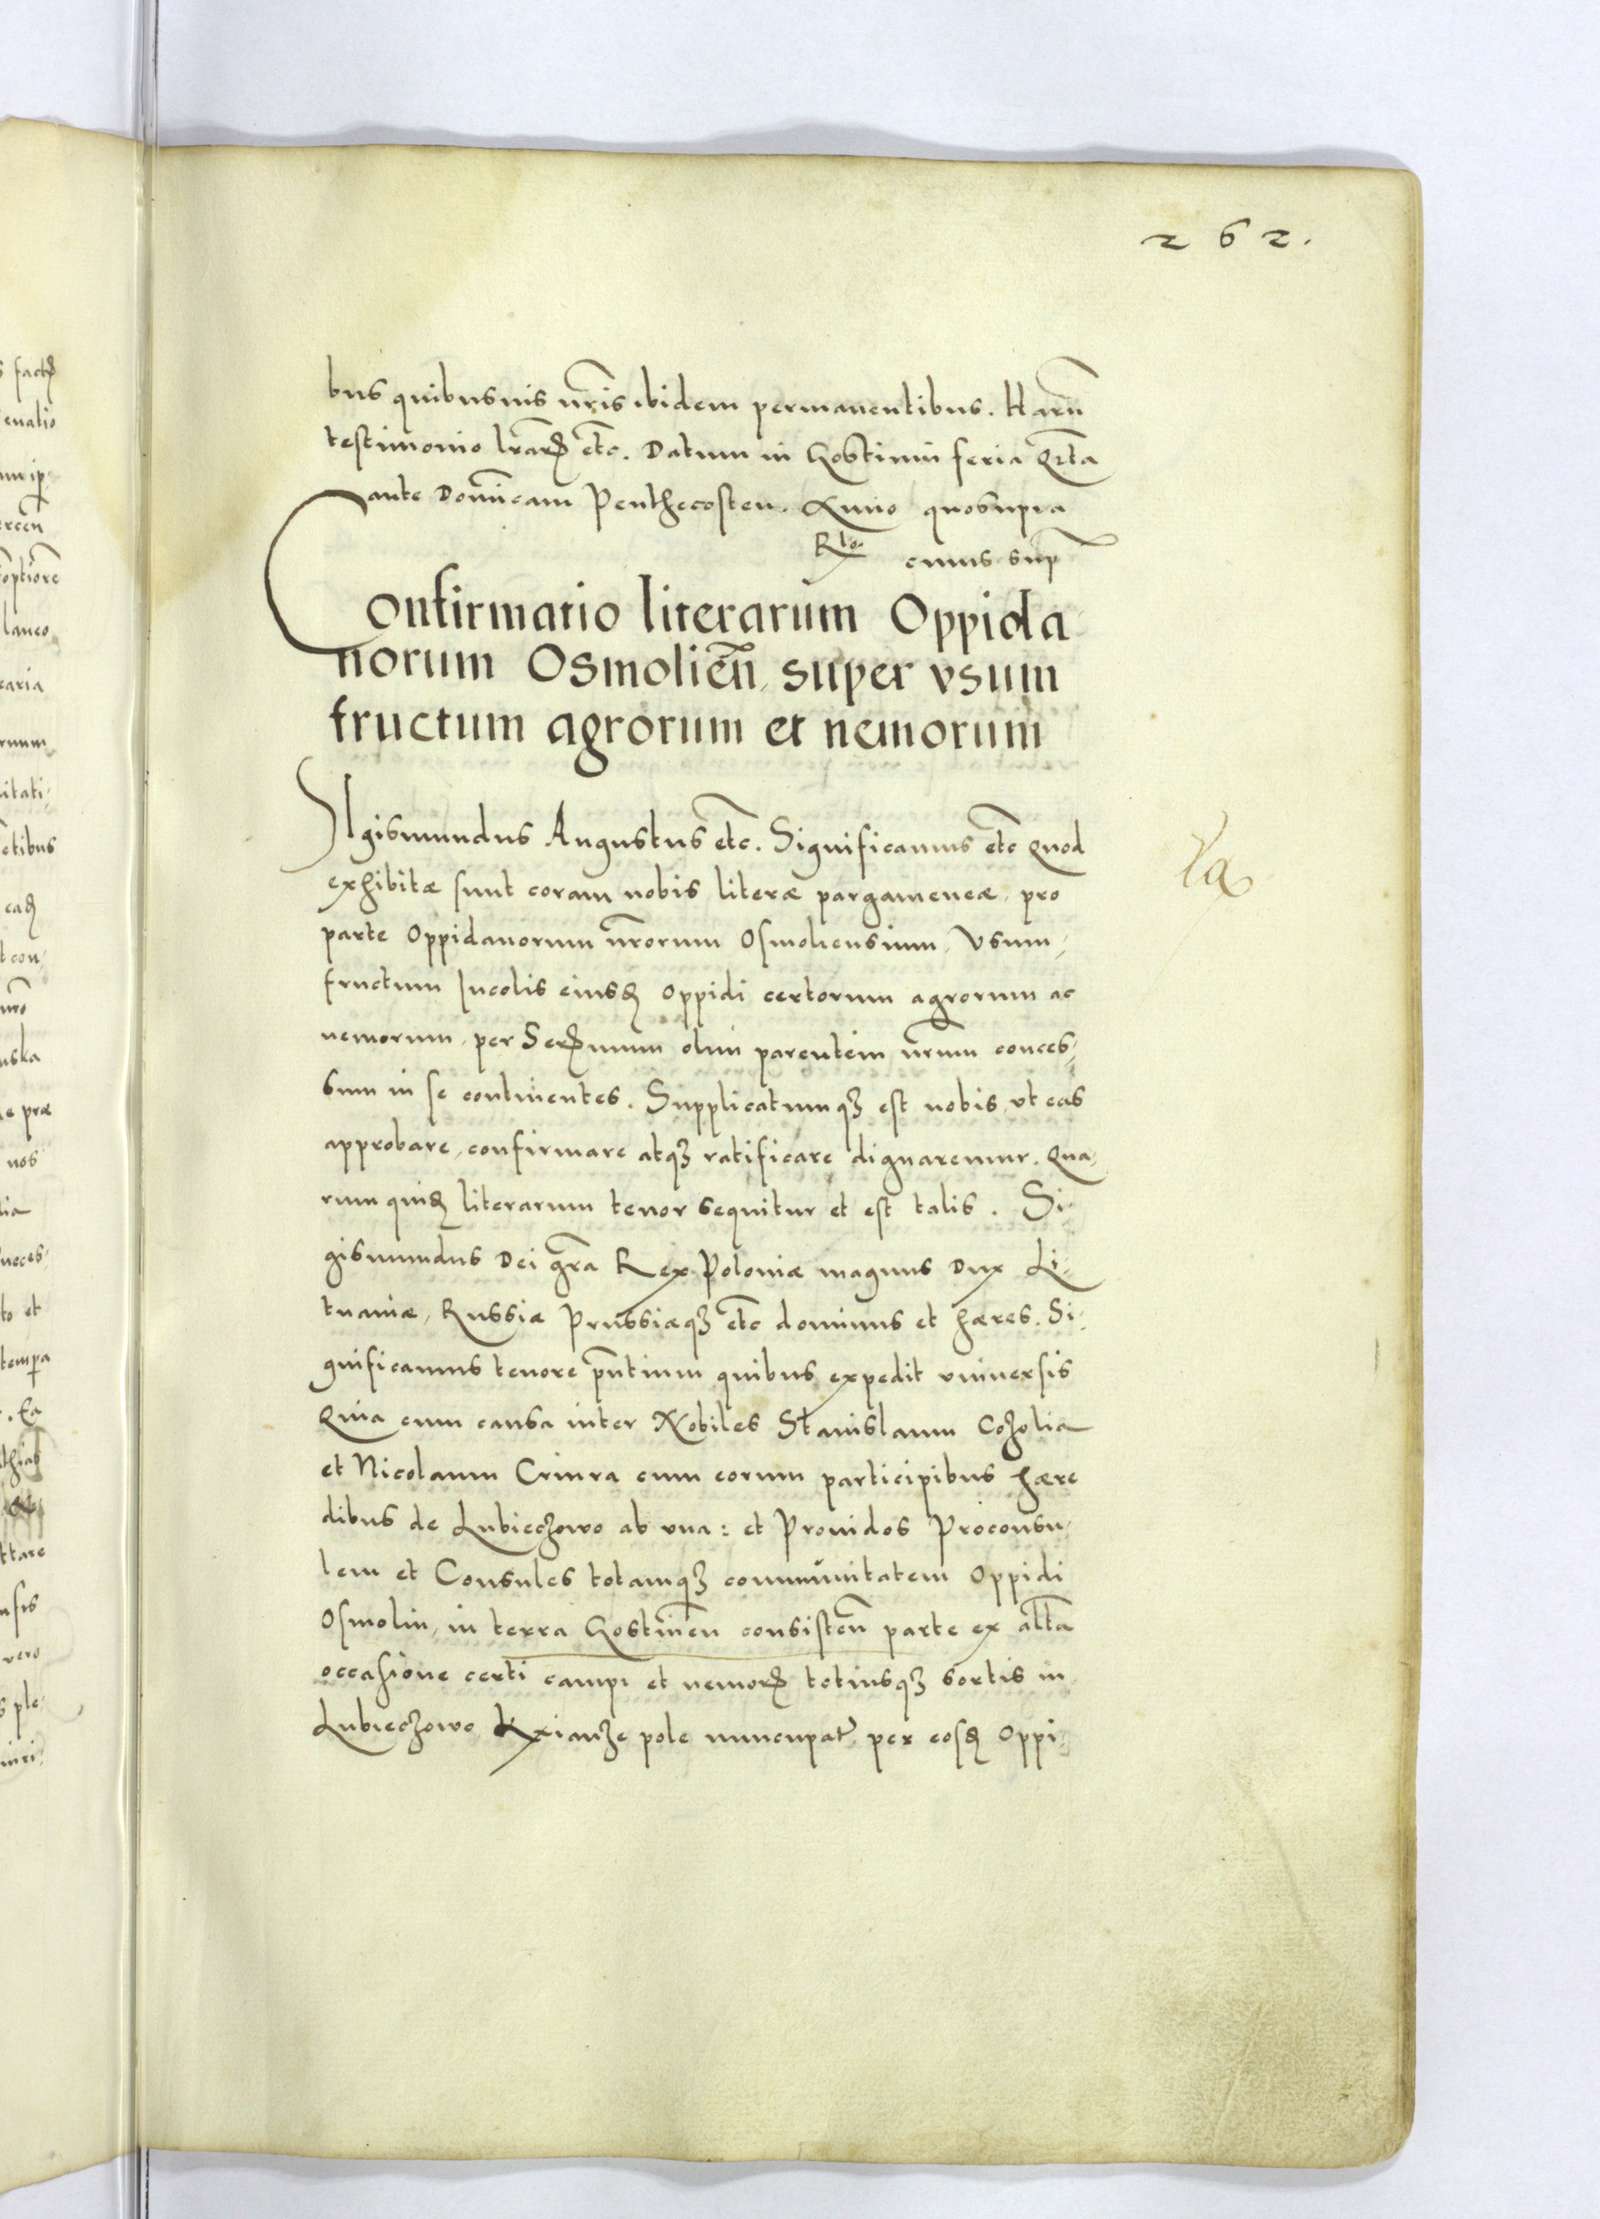 262.
bus quibusuis nr̃is ibidem permanentibus. Harũ
testimonio lr̃arꝝ etc̃. Datum in Gostinin feria Qr̃ta
ante Dom̃icam Penthecosten. Anno quosupra
R̃lo. cuius sup̃
Confirmatio literarum Oppida
norum Osmolieñ, super vsum
fructum agrorum et nemorum
Sigismundus Augustus etc̃. Significamus etc̃ Quod
exhibitæ sunt coram nobis literæ pargameneæ, pro
parte Oppidanorum nr̃orum Osmoliensium, Vsum,
fructum Incolis eiusꝺ Oppidi certorum agrorum ac
nemorum, per Serꝺmum olim parentem nr̃um conces,
sum in se continentes. Supplicatumqꝫ est nobis, vt eas
approbare, confirmare atqꝫ ratificare dignaremur. Qua,
rum quiꝺ literarum tenor sequitur et est talis. Si,
gismundus Dei gr̃a Rex Poloniæ magnus Dux Li,
tuaniæ, Russiæ Prussiæqꝫ etc̃ dominus et hæres. Si,
gnificamus tenore pñtium quibus expedit vniuersis
Quia cum causa inter Nobiles Stanislaum Cozolia
et Nicolaum Criura cum eorum participibus hære
dibus de Lubieczowo ab vna: et Prouidos Proconsu,
lem et Consules totamqꝫ communitatem Oppidi
Osmolin, in terra Gostineñ consisteñ parte ex alt̃a
occasione certi campi et nemorꝝ totiusqꝫ sortis in
Lubieczowo Kxianze pole nuncupat̃ per eosꝺ Oppi,